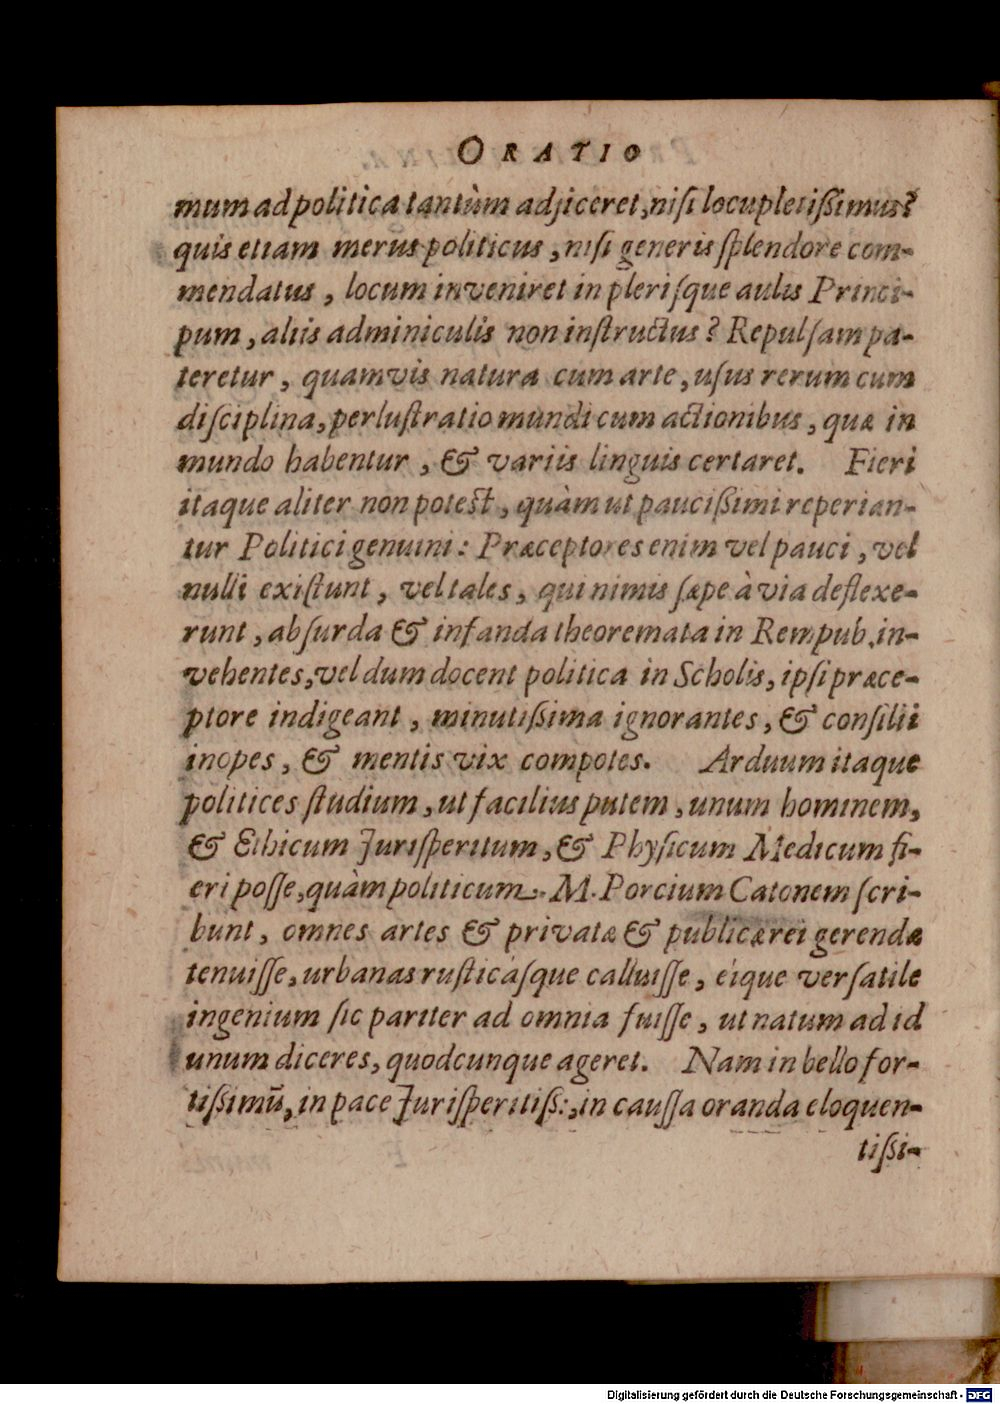 ORATIO
mum ad politica tantùm adjiceret, niſi locupletiſſimus?
quis etiam merus politicus, niſi generis ſplendore com-
mendatus, locum inveniret in pleriſque aulis Princi-
pum, aliis adminiculis non inſtructus? Repulſam pa-
teretur, quamvis natura cum arte, uſus rerum cum
diſciplina, perluſtratio mundi cum actionibus, quæ in
mundo habentur, & variis linguis certaret. Fieri
itaque aliter non poteſt, quàm ut pauciſſimi reperian-
tur Politici genuini: Præceptores enim vel pauci, vel
nulli exiſtunt, vel tales, qui nimis ſæpe à via deflexe-
runt, abſurda & infanda theoremata in Rempub. in-
vehentes, vel dum docent politica in Scholis, ipſi præce-
ptore indigeant, minutiſſima ignorantes, & conſilii
inopes, & mentis vix compotes. Arduum itaque
politices ſtudium, ut facilius putem, unum hominem,
& Ethicum Juriſperitum, & Phyſicum Medicum fi-
eri poſſe, quàm politicum. M. Porcium Catonem ſcri-
bunt, omnes artes & privatæ & publicæ rei gerendæ
tenuiſſe, urbanas ruſticáſque calluiſſe, eíque verſatile
ingenium ſic pariter ad omnia fuiſſe, ut natum ad id
unum diceres, quodcunque ageret. Nam in bello for-
tiſſimũ, in pace Juriſperitiſſ:, in cauſſa oranda eloquen-
tiſſi-
Digitalisierung gefördert durch die Deutsche Forschungsgemeinschaft - DFG